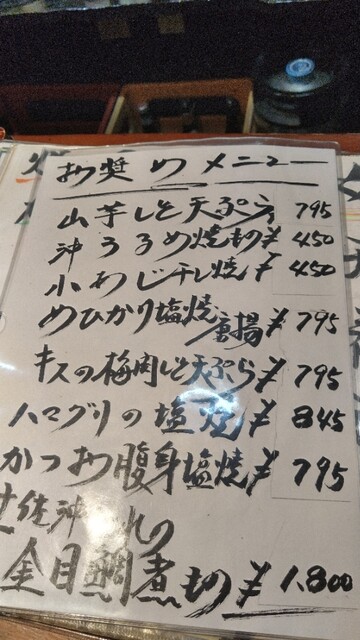 お奨めメニュー
山芋しそ天ぷら 795
沖うるめ焼もの ¥450
小あじ干し焼 ¥450
めひかり塩焼 唐揚 ¥795
キスの梅肉しそ天ぷら ¥795
ハマグリの塩焼 ¥845
かつお腹身塩焼 ¥795
土佐沖
金目鯛煮もの ¥1.800